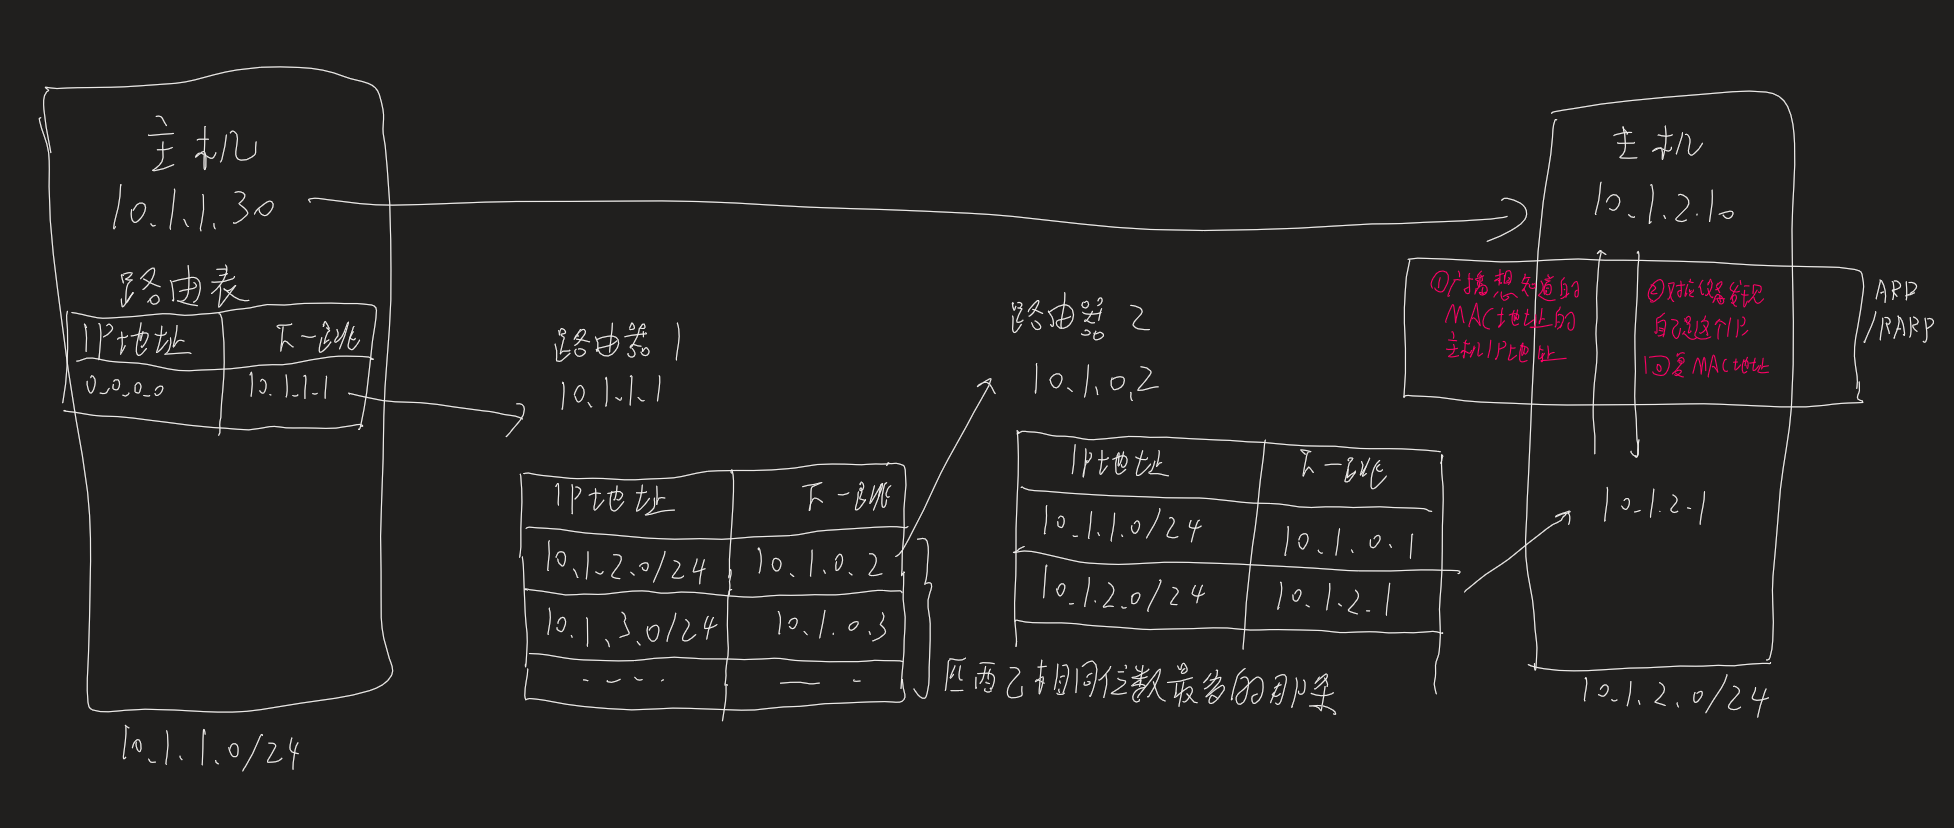 主机
10.1.1.30
路由表
IP地址 下一跳
0.0.0.0 10.1.1.1
10.1.1.0/24
路由器1
10.1.1.1
IP地址 下一跳
10.1.2.0/24 10.1.0.2
10.1.3.0/24 10.1.0.3
---- -- -
匹配相同位数最多的那条
路由器2
10.1.0.2
IP地址 下一跳
10.1.1.0/24 10.1.0.1
10.1.2.0/24 10.1.2.1
主机
10.1.2.10
①广播想知道的
MAC地址的
主机IP地址
②对应设备发现
自己是这个IP,
回复MAC地址
ARP
/RARP
10.1.2.1
10.1.2.0/24